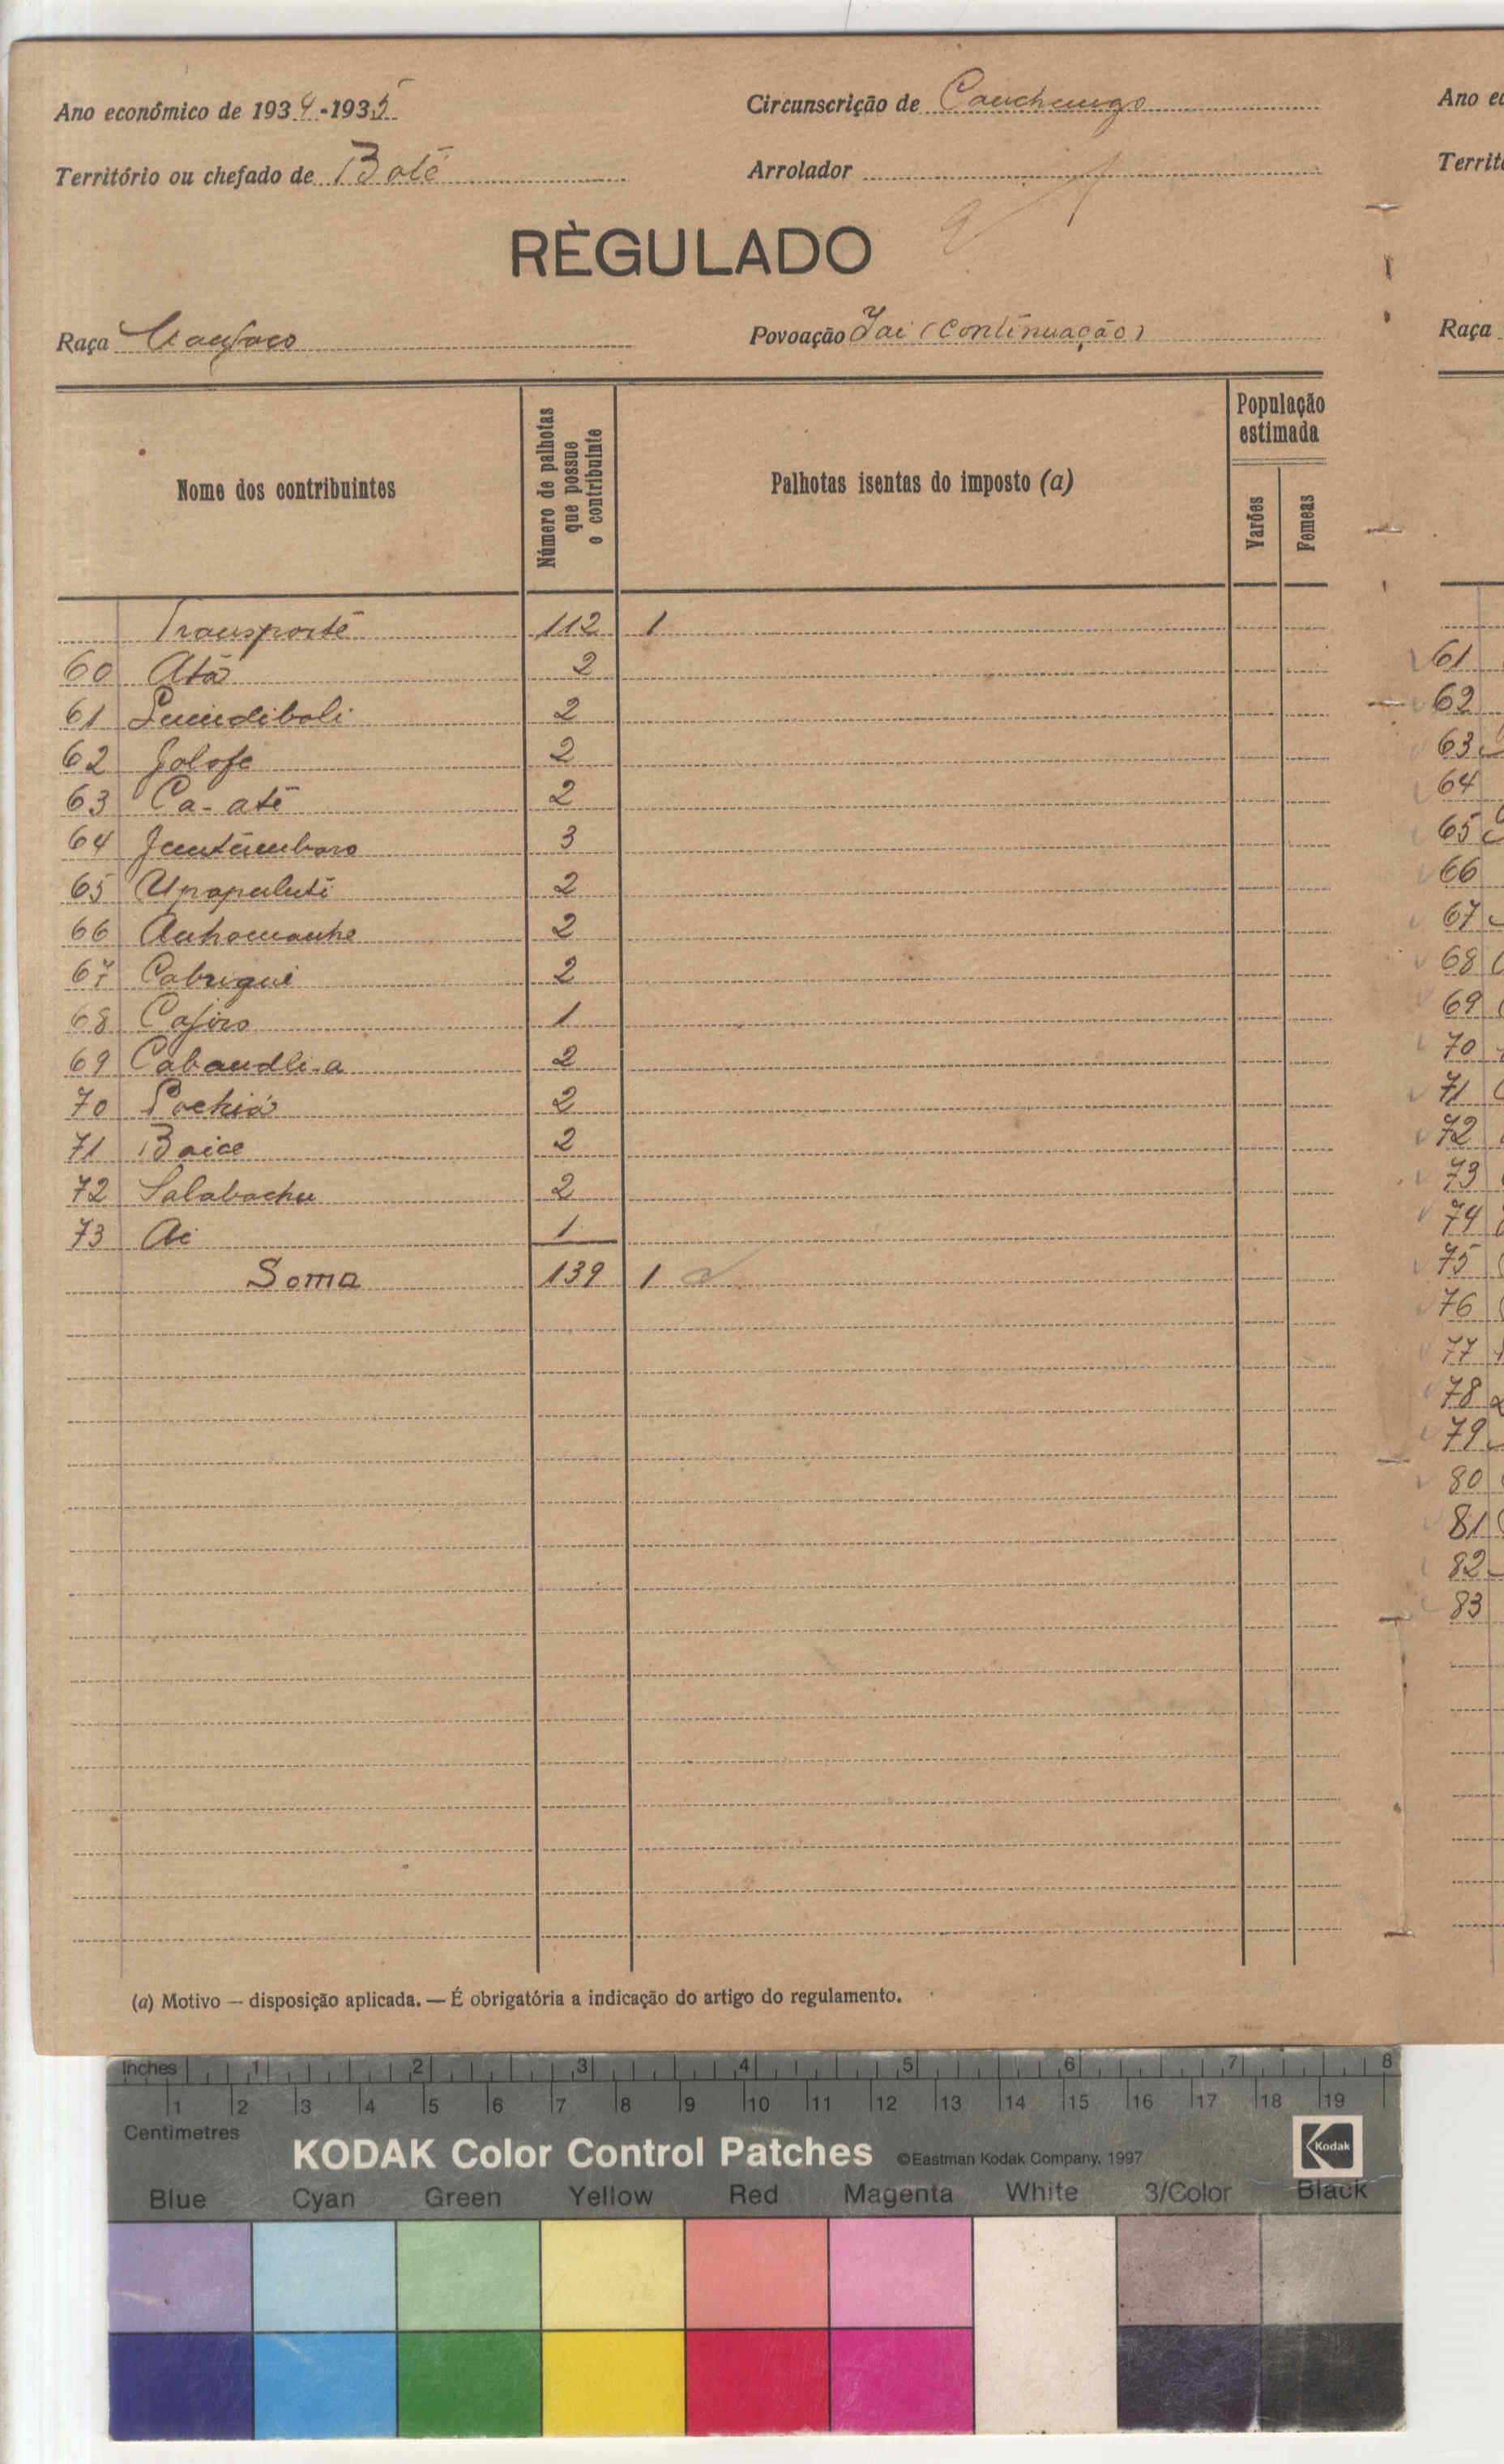 Ano económico de 1934-1935
Circunscrição de Canchungo
Território ou chefado de Bote
Arrolador
RÈGULADO
Raça Manjaco
Povoação Jai (Continuação)
Nome dos contribuintes
Número de palhotas que possue o contribuinte
Palhotas isentas do imposto (a)
População estimada
Varões
Femeas
Transporte 112 1
60 Atá 2
61 2
62 Jolofe 2
63 Ca-até 2
64 3
65 Upapaluti 2
66 2
67 Cabrigui 2
68 Cajiro 1
69 Cabandli-a 2
70 Pochiá 2
71 Baice 2
72 Salabachu 2
73 Ai 1
Soma 139 1
(a) Motivo — disposição aplicada. — É obrigatória a indicação do artigo do regulamento.
Ano
Territ
Raça
61
62
63
64
65
66
67
68
69
70
71
72
73
74
75
76
77
78
79
80
81
82
83
Inches 1 2 3 4 5 6 7 8
1 2 3 4 5 6 7 8 9 10 11 12 13 14 15 16 17 18 19
Centimetres
KODAK Color Control Patches ©Eastman Kodak Company, 1997 Kodak
Blue Cyan Green Yellow Red Magenta White 3/Color Black